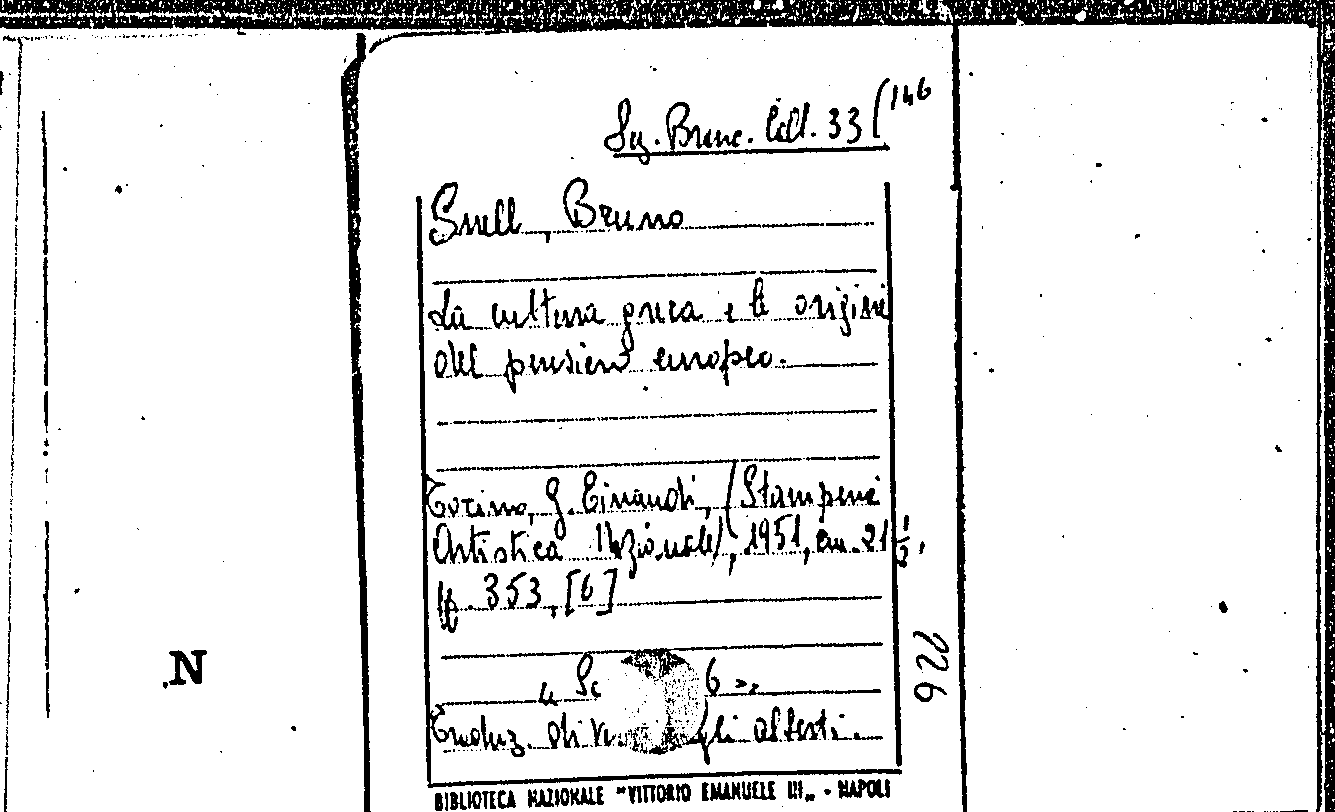 Sez. Branc. Coll. 33 (146
Snell, Bruno
La cultura greca e le origini
del pensiero europeo.
Torino, G. Einaudi, (Stamperia
Artistica Nazionale), 1951, cm. 21 1/2,
pp. 353, [6]
6 ».
Traduz. di degli Alberti.
226
N
BIBLIOTECA NAZIONALE "VITTORIO EMANUELE III„ - NAPOLI